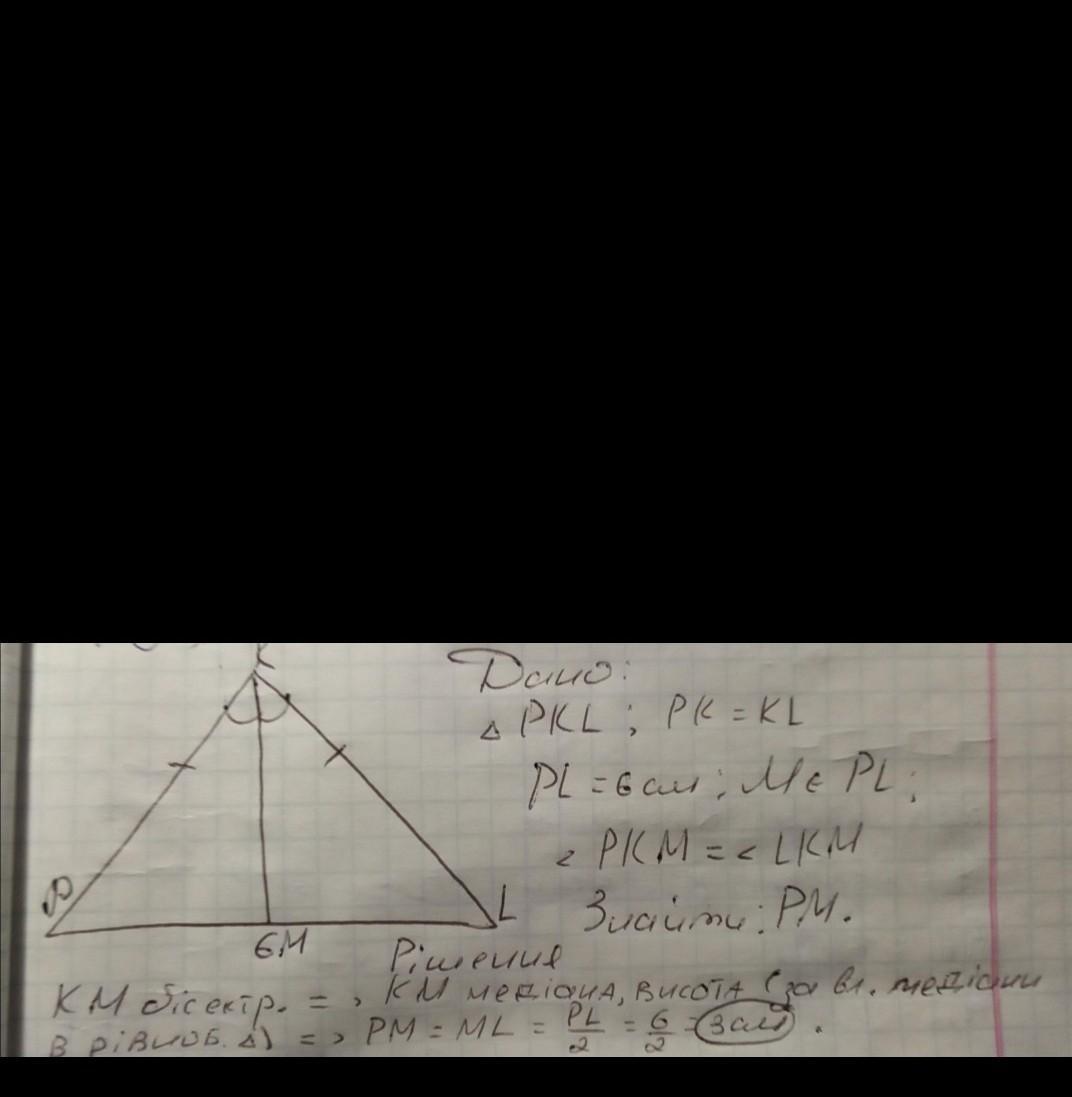 K
Дано:
△ PKL ; PK = KL
PL = 6 см ; M ∈ PL ;
∠ PKM = ∠ LKM
Знайти: PM.
P
L
6 M
Рішення
KM бісектр. => KM медіана, висота (за вл. медіани
в рівноб. △) => PM = ML = PL/2 = 6/2 = 3 см .